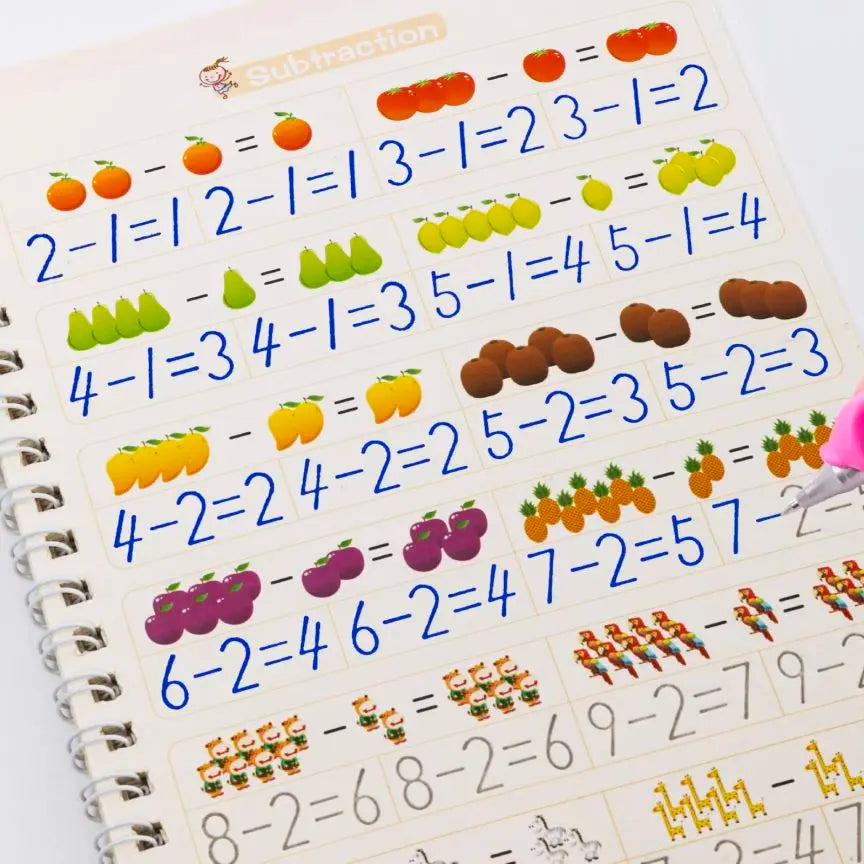 Subtraction
- = - =
2-1=1 2-1=1 3-1=2 3-1=2
- = - =
4-1=3 4-1=3 5-1=4 5-1=4
- = - =
4-2=2 4-2=2 5-2=3 5-2=3
- = - =
6-2=4 6-2=4 7-2=5 7-2-
- = - =
8-2=6 8-2=6 9-2=7 9-2
= -
=4